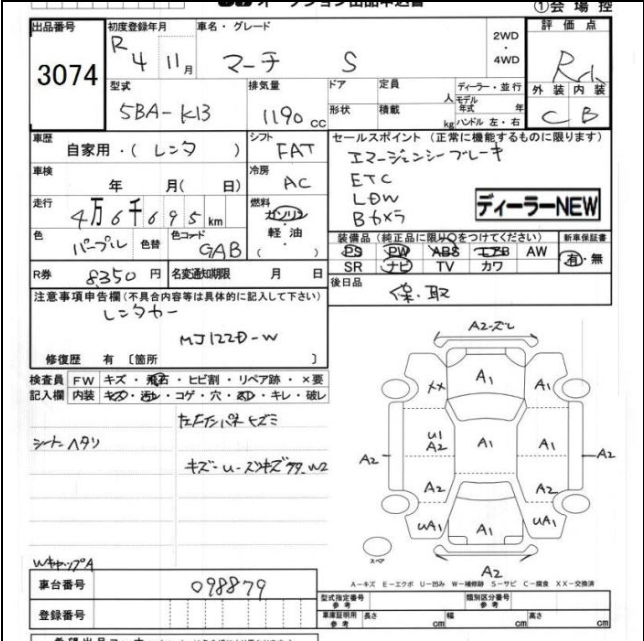 ①会場控
出品番号 初度登録年月 車名・グレード 評価点
3074 R4 11月 マーチ S 2WD・4WD R
型式 排気量 ドア 定員 ディーラー・並行 外装 内装
5BA-K13 1190cc 形状 積載 人 モデル年式 年 C B
kg ハンドル 左・右
車歴 シフト セールスポイント (正常に機能するものに限ります)
自家用・( レンタ ) FAT エマージェンシーブレーキ
車検 冷房 ETC
年 月( 日) AC LDW
走行 燃料 Bカメラ ディーラーNEW
4万6千695km ガソリン
色 色替 色コード 軽油 装備品(純正品に限り○をつけてください) 新車保証書
パープル GAB ( ) PS PW ABS エアB AW 有・無
SR ナビ TV カワ
R券 8350円 名変通知期限 月 日 後日品
保・取
注意事項申告欄(不具合内容等は具体的に記入して下さい)
レンタカー
MJ122D-W
修復歴 有〔箇所 〕
検査員 FW キズ・飛石・ヒビ割・リペア跡・×要
記入欄 内装 キズ・汚レ・コゲ・穴・・キレ・破レ
シートヘタリ
WキャップA
A2-ズレ
XX A1 A1
A2 U1 A2 A1 A1 A2
A2 A2
UA1 A1 UA1
スペア
A2
A-キズ E-エクボ U-凹み W-補修跡 S-サビ C-腐食 XX-交換済
車台番号 098879
型式指定番号 参考 類別区分番号 参考
登録番号
車庫証明用 参考 長さ cm 幅 cm 高さ cm